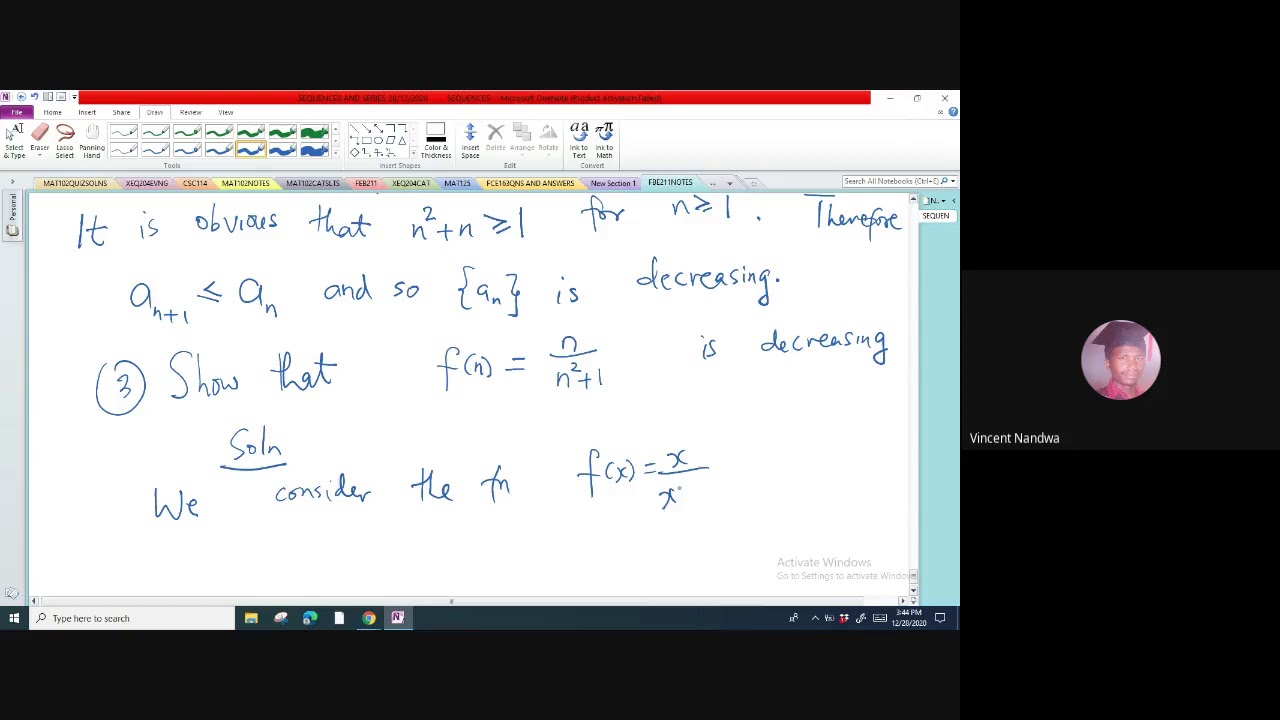 SEQUENCES AND SERIES 28/12/2020 SEQUENCES! - Microsoft OneNote (Product Activation Failed)
File Home Insert Share Draw Review View
Select & Type Eraser Lasso Select Panning Hand Color & Thickness Insert Space Delete Arrange Rotate Ink to Text Ink to Math
Tools Insert Shapes Edit Convert
MAT102QUIZSOLNS XEQ204EVNG CSC114 MAT102NOTES MAT102CATSLTS FEB211 XEQ204CAT MAT125 FCE163QNS AND ANSWERS New Section 1 FBE211NOTES Search All Notebooks (Ctrl+E)
Personal
SEQUEN
It is obvious that n²+n ≥ 1 for n ≥ 1. Therefore
aₙ₊₁ ≤ aₙ and so {aₙ} is decreasing.
③ Show that f(n) = n/(n²+1) is decreasing
Soln
We consider the fn f(x) = x/x
Vincent Nandwa
Activate Windows
Go to Settings to activate Windows
Type here to search
3:44 PM
12/28/2020